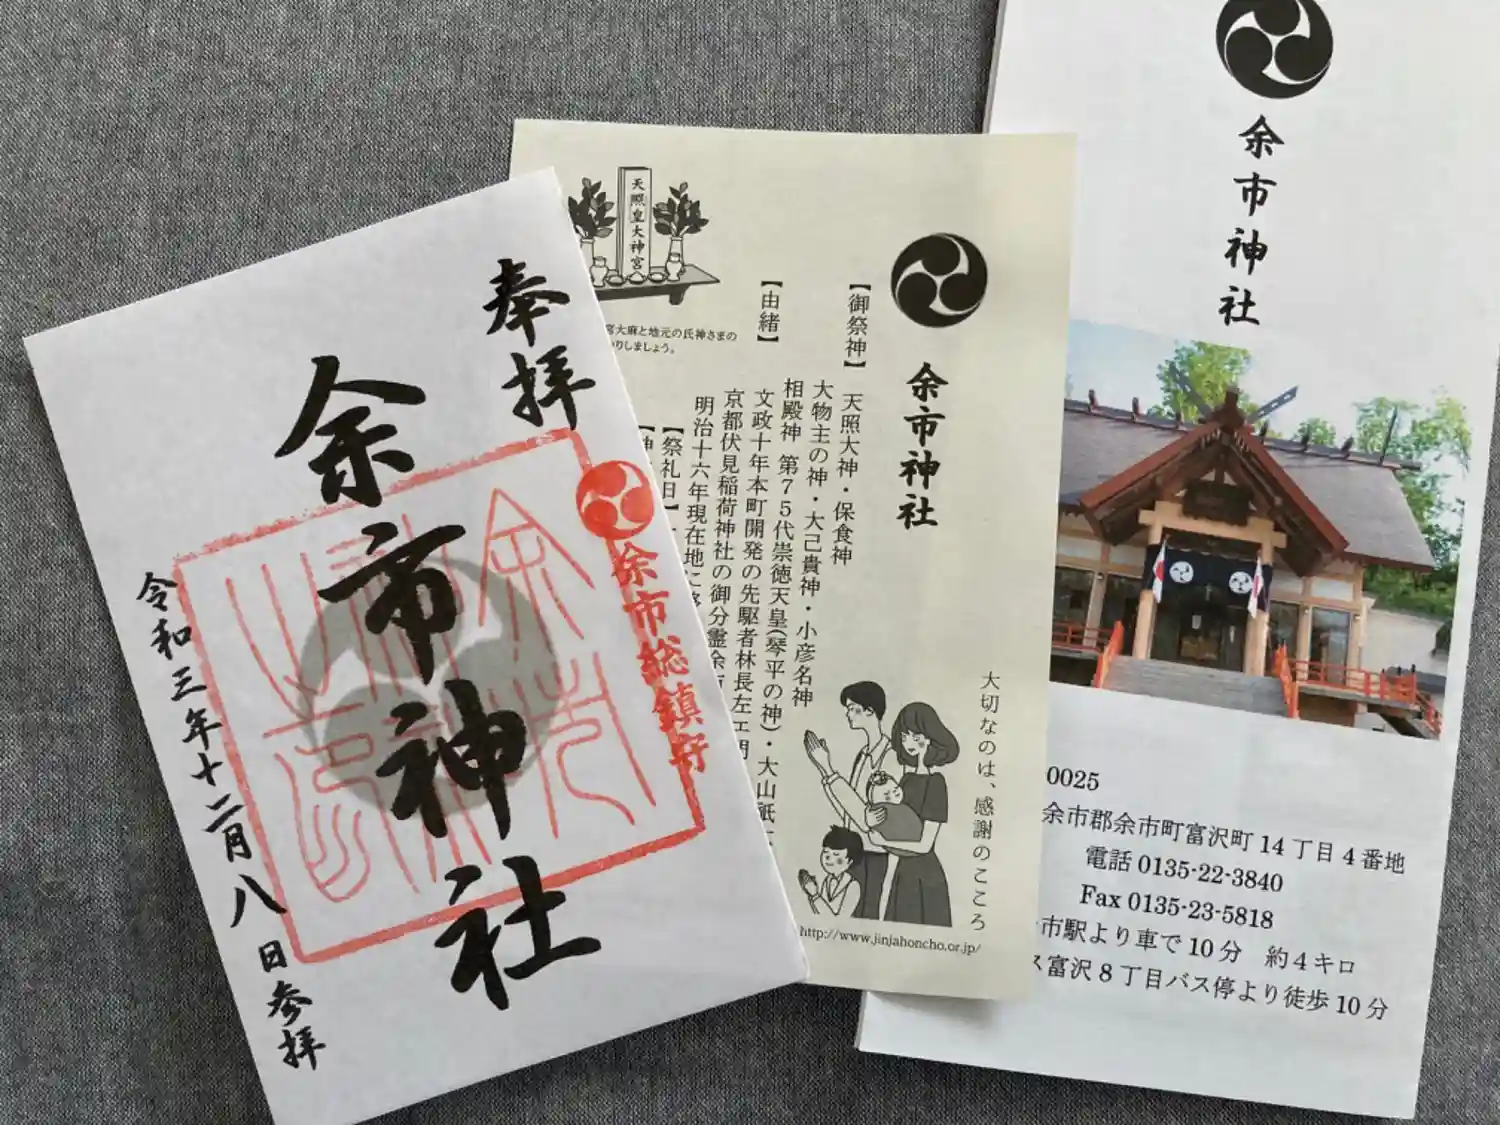 奉拝
余市神社
余市総鎮守
令和三年十二月八日参拝
余市神社
【御祭神】 天照大神・保食神
大物主の神・大己貴神・小彦名神
相殿神 第75代崇徳天皇(琴平の神)・大山祇
【由緒】
文政十年本町開発の先駆者林長左エ門
京都伏見稲荷神社の御分霊余市
明治十六年現在地に
【祭礼日】
【神
天照皇大神宮
宮大麻と地元の氏神さまの
りしましょう。
大切なのは、感謝のこころ
http://www.jinjahoncho.or.jp/
余市神社
0025
余市郡余市町富沢町14丁目4番地
電話 0135-22-3840
Fax 0135-23-5818
市駅より車で10分 約4キロ
ス富沢8丁目バス停より徒歩10分